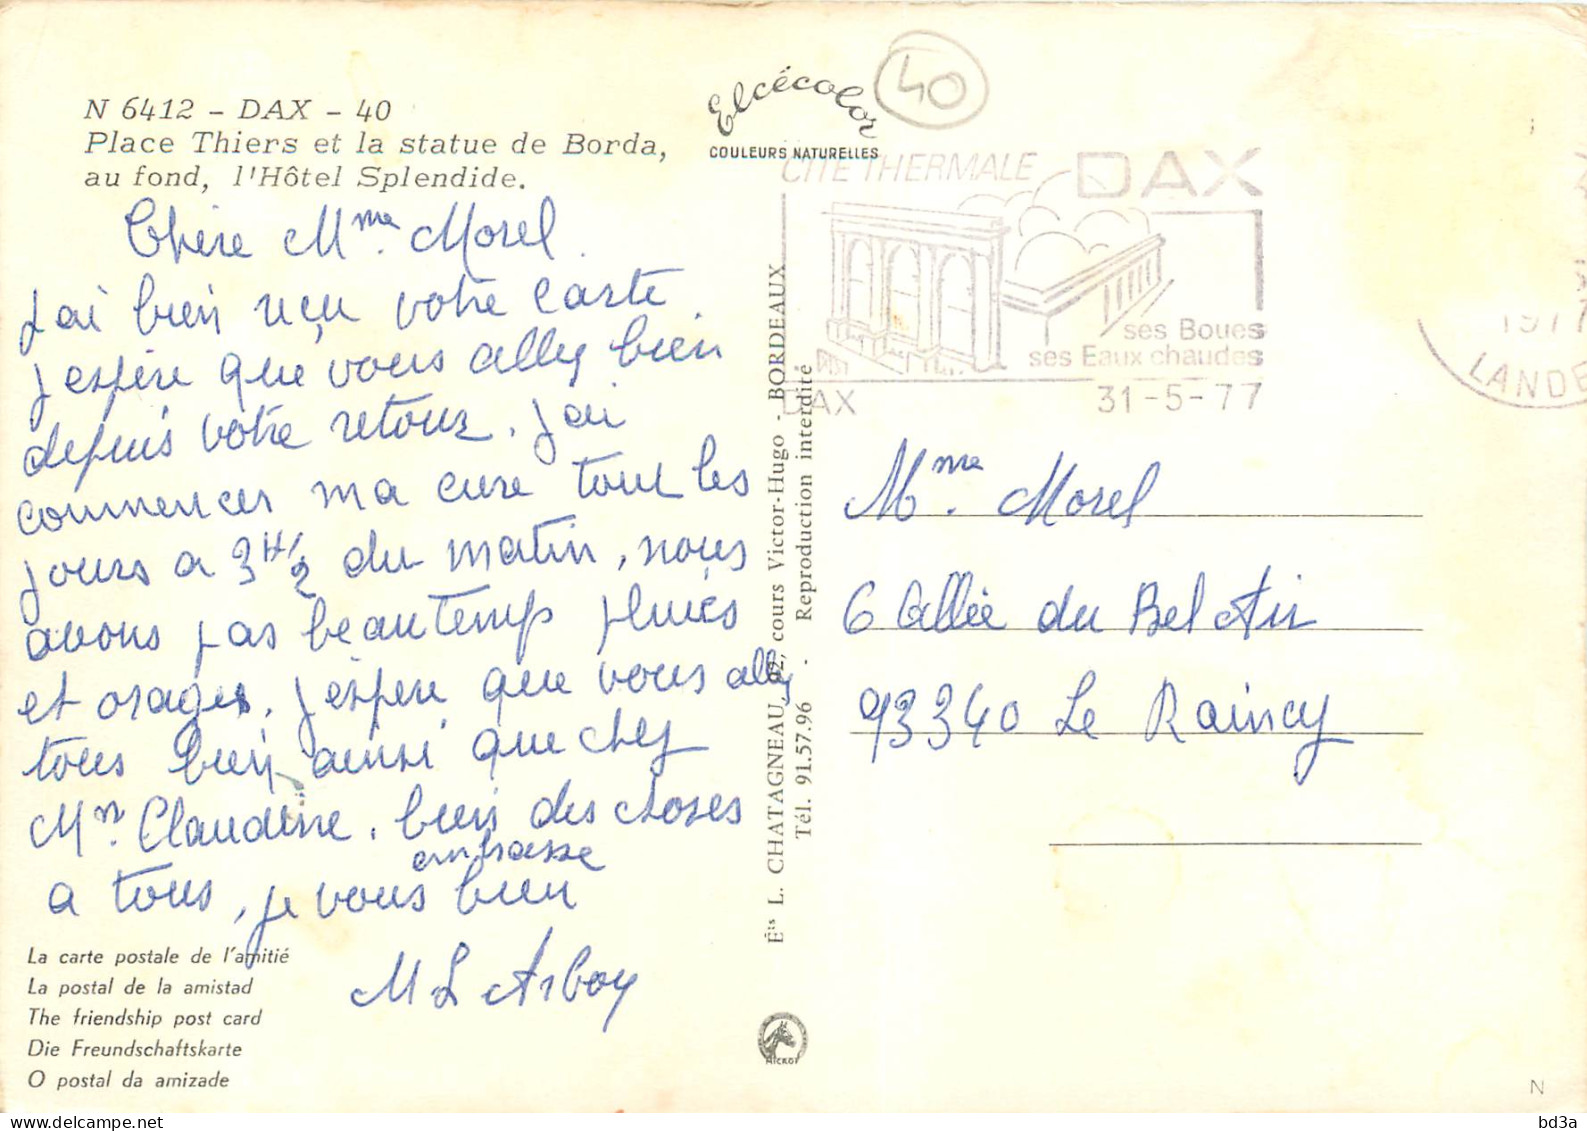 N 6412 - DAX - 40
Place Thiers et la statue de Borda,
au fond, l'Hôtel Splendide.
Chère Mme. Morel.
J'ai bien reçu votre carte
j'espère que vous allez bien
depuis votre retour. J'ai
commencer ma cure tout les
jours a 3 H 1/2 du matin, nous
avons pas beau temps pluies
et orages. J'espere que vous allez
tous bien ainsi que chez
Mn. Claudine. bien des choses
a tous, je vous bien
embrasse
M L Arboy
La carte postale de l'amitié
La postal de la amistad
The friendship post card
Die Freundschaftskarte
O postal da amizade
Elcécolor
COULEURS NATURELLES
40
Éts L. CHATAGNEAU, 92, cours Victor-Hugo - BORDEAUX
Tél. 91.57.96 - Reproduction interdite
MICROF
CITE THERMALE DAX
ses Boues
ses Eaux chaudes
DAX 31-5-77
1977
LANDE
Mme. Morel
6 Allée du Bel Air
93340 Le Raincy
N
bd3a